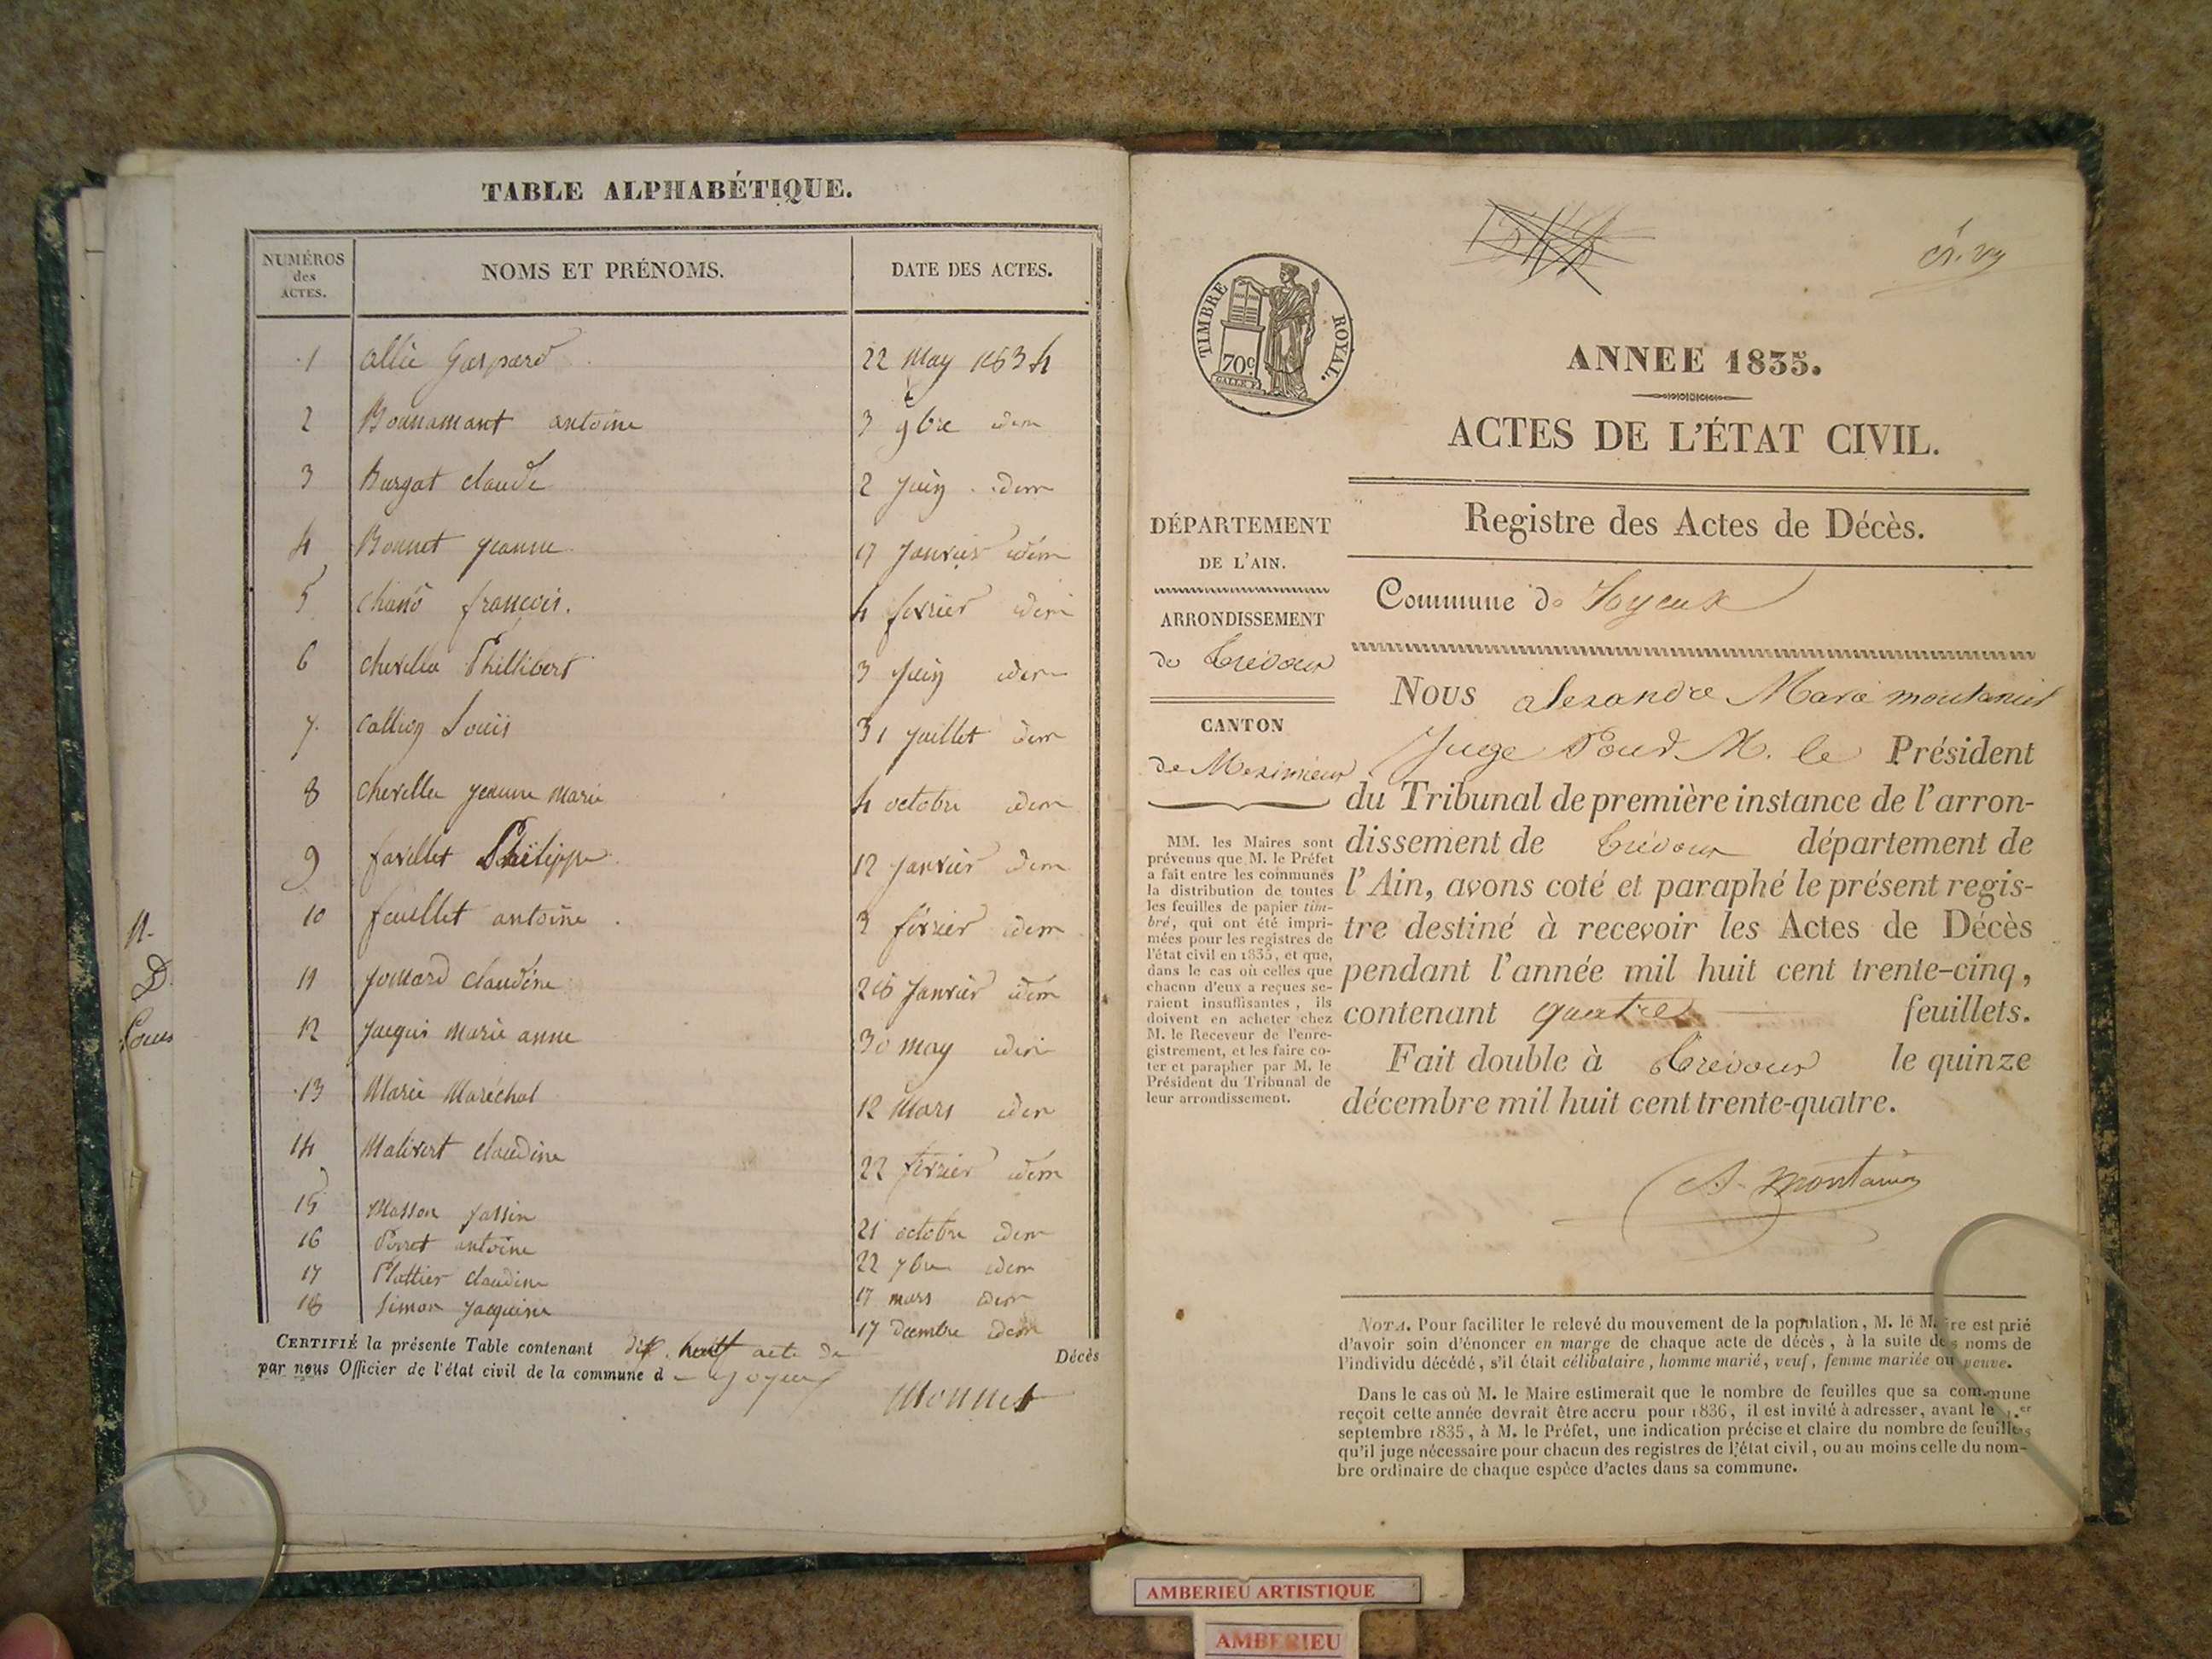 TABLE ALPHABÉTIQUE.
NUMÉROS des ACTES.
NOMS ET PRÉNOMS.
DATE DES ACTES.
1 allié Gaspard 22 May 1834
2 Bonnamant antoine 3 9bre idem
3 Burgat claude 2 juin idem
4 Bonnet jeanne 17 janvier idem
5 françois. 4 fevrier idem
6 chevellu Phillibert 3 juin idem
7 Louis 31 juillet idem
8 chevellu jeanne marie 4 octobre idem
9 favillet Philippe 12 janvier idem
10 feuillet antoine 3 février idem
11 claudine 28 janvier idem
12 jacquis marie anne 30 may idem
13 Marie Maréchal 12 Mars idem
14 Malivert claudine 22 fevrier idem
15 Masson 21 octobre idem
16 antoine 22 7bre idem
17 Plattier claudine 17 mars idem
18 Simon jacquine 17 decembre idem
CERTIFIÉ la présente Table contenant dix huit acte de Décès
par nous Officier de l'état civil de la commune d Joyeux
Monnet
TIMBRE ROYAL.
70c.
ANNEE 1835.
ACTES DE L'ÉTAT CIVIL.
Registre des Actes de Décès.
DÉPARTEMENT
DE L'AIN.
ARRONDISSEMENT
de Trévoux
CANTON
de Meximieux
MM. les Maires sont
prévenus que M. le Préfet
a fait entre les communes
la distribution de toutes
les feuilles de papier tim-
bré, qui ont été impri-
mées pour les registres de
l'état civil en 1835, et que,
dans le cas où celles que
chacun d'eux a reçues se-
raient insuffisantes, ils
doivent en acheter chez
M. le Receveur de l'enre-
gistrement, et les faire co-
ter et parapher par M. le
Président du Tribunal de
leur arrondissement.
Commune de Joyeux
Nous alexandre Marie
Juge Pour M. le Président
du Tribunal de première instance de l'arron-
dissement de Trévoux département de
l'Ain, avons coté et paraphé le présent regis-
tre destiné à recevoir les Actes de Décès
pendant l'année mil huit cent trente-cinq,
contenant quatre feuillets.
Fait double à Trévoux le quinze
décembre mil huit cent trente-quatre.
NOTA. Pour faciliter le relevé du mouvement de la population, M. le Maire est prié
d'avoir soin d'énoncer en marge de chaque acte de décès, à la suite des noms de
l'individu décédé, s'il était célibataire, homme marié, veuf, femme mariée ou veuve.
Dans le cas où M. le Maire estimerait que le nombre de feuilles que sa commune
reçoit cette année devrait être accru pour 1836, il est invité à adresser, avant le 1.er
septembre 1835, à M. le Préfet, une indication précise et claire du nombre de feuilles
qu'il juge nécessaire pour chacun des registres de l'état civil, ou au moins celle du nom-
bre ordinaire de chaque espèce d'actes dans sa commune.
AMBERIEU ARTISTIQUE
AMBERIEU